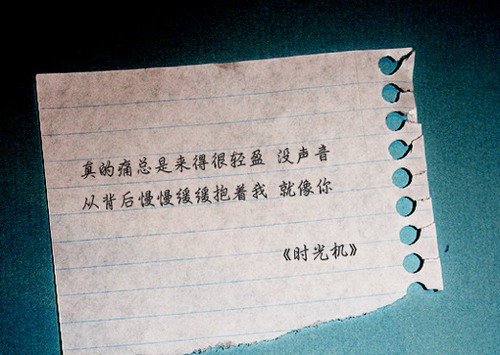 真的痛总是来得很轻盈 没声音
从背后慢慢缓缓抱着我 就像你
《时光机》